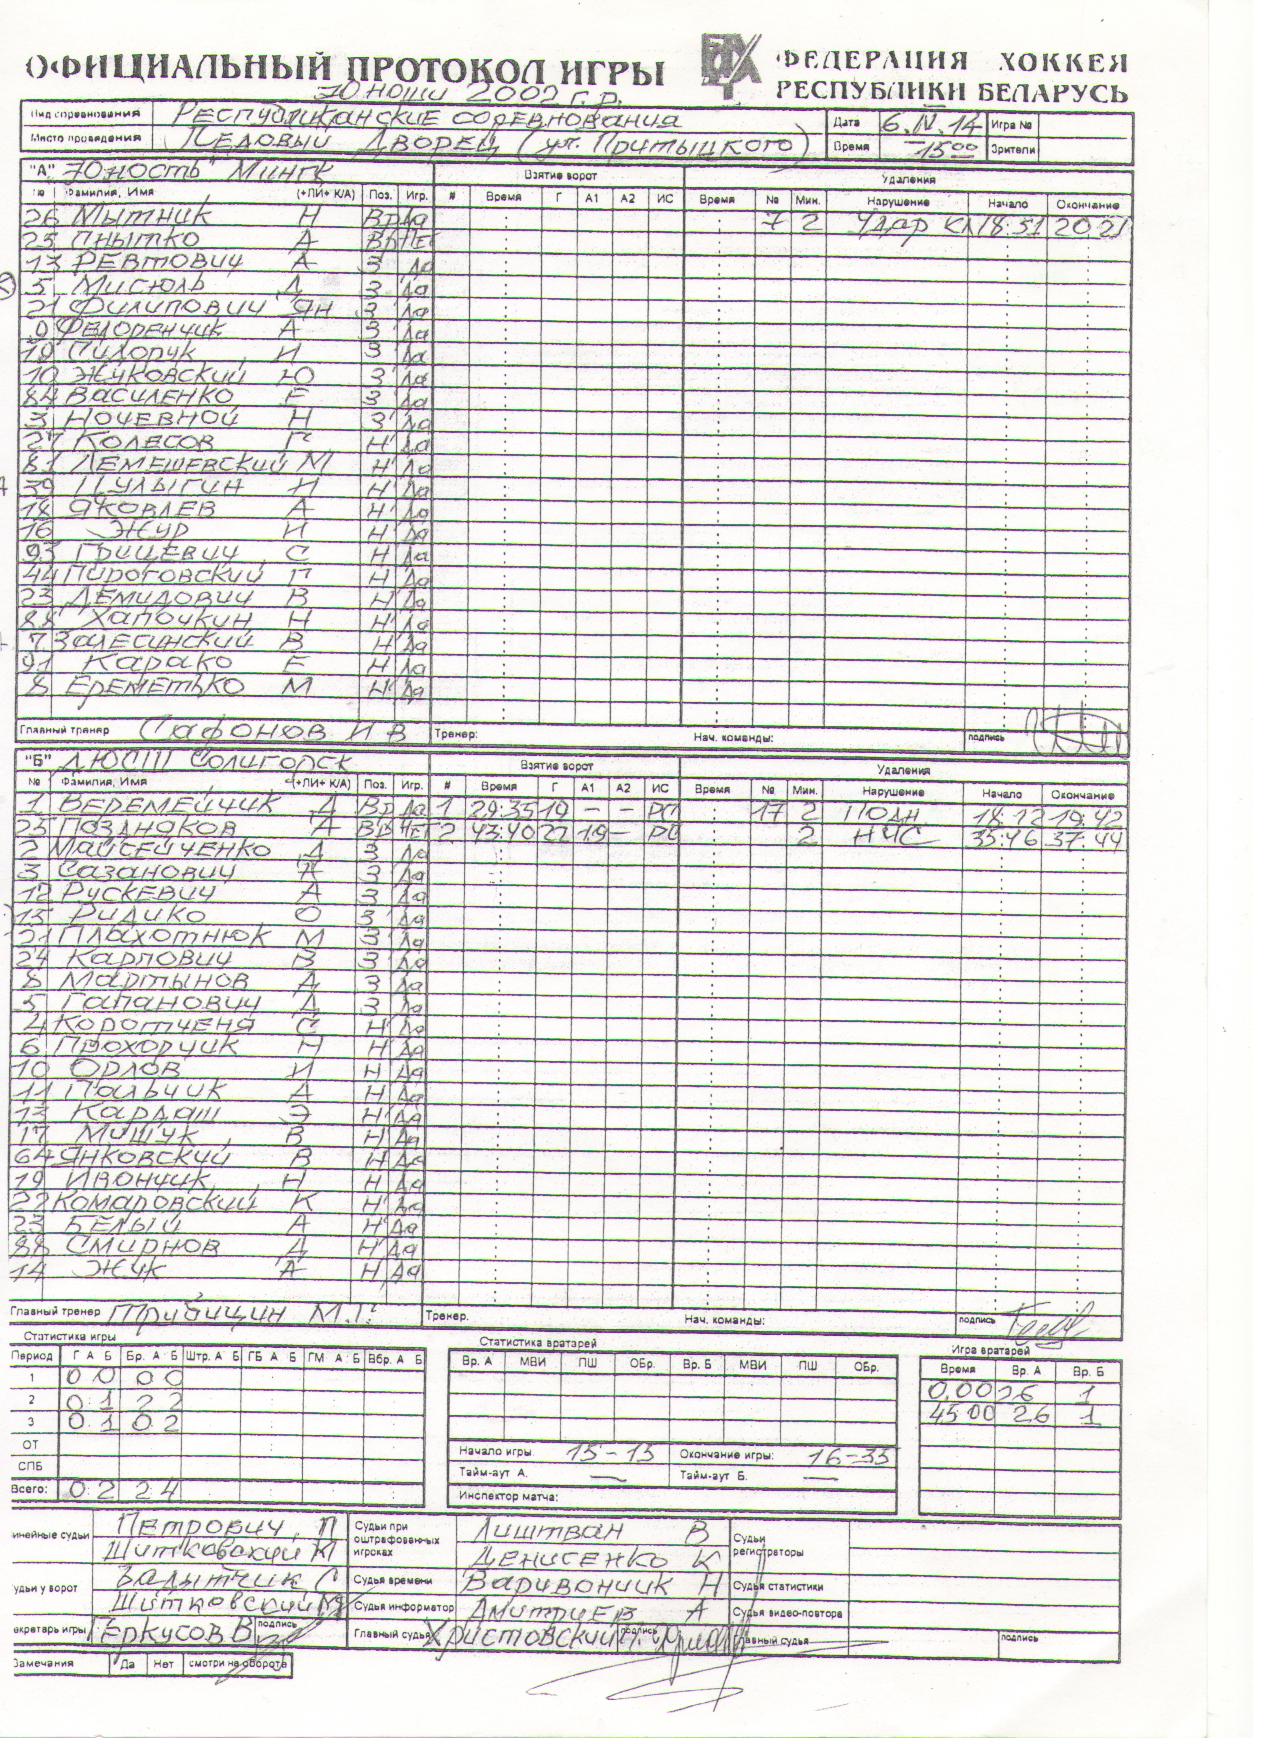 ОФИЦИАЛЬНЫЙ ПРОТОКОЛ ИГРЫ
ФЕДЕРАЦИЯ ХОККЕЯ
РЕСПУБЛИКИ БЕЛАРУСЬ
Юноши 2002 г.р.
Вид соревнования Республиканские соревнования Дата 6.IV.14 Игра №
Место проведения Ледовый Дворец (ул. Притыцкого) Время 15 00 Зрители
"А" Юность Минск Взятие ворот Удаления
№ Фамилия, Имя (+ЛИ+ К/А) Поз. Игр. # Время Г А1 А2 ИС Время № Мин. Нарушение Начало Окончание
26 Мытник Н Вр Да 7 2 Удар КЛ 18:51 20:21
25 Пнытко А Вр Нет
13 Ревтович А З Да
5 Мисюль Д З Да
21 Филипович Ян З Да
9 Федоренчик А З Да
19 Сидорук И З Да
10 Жуковский Ю З Да
84 Василенко Е З Да
3 Ночевной Н З Да
27 Колесов Г Н Да
81 Лемешевский М Н Да
39 Пулыгин И Н Да
18 Яковлев А Н Да
16 Жур И Н Да
93 Грицевич С Н Да
44 Пироговский П Н Да
23 Демидович В Н Да
88 Хапочкин Н Н Да
7 Залесинский В Н Да
91 Карако Е Н Да
8 Ереметько М Н Да
Главный тренер Сафонов И В Тренер: Нач. команды: подпись
"Б" ДЮСШ Солигорск Взятие ворот Удаления
№ Фамилия, Имя (+ЛИ+ К/А) Поз. Игр. # Время Г А1 А2 ИС Время № Мин. Нарушение Начало Окончание
1 Веремейчик Д Вр Да 1 29:35 19 - - РС 17 2 Подн 18:12 19:42
25 Поздняков А Вр Нет 2 43:40 22 19 - РС 2 НЧС 35:46 37:44
2 Майсейченко Д З Да
3 Сазанович А З Да
12 Рускевич А З Да
15 Ридико О З Да
21 Плахотнюк М З Да
24 Карпович В З Да
8 Мартынов Д З Да
5 Гапанович Д З Да
4 Коротченя С Н Да
6 Прохорчик Н Н Да
10 Орлов И Н Да
11 Пальчик А Н Да
13 Кардаш Э Н Да
17 Мишук В Н Да
64 Янковский В Н Да
19 Ивончик Н Н Да
22 Комаровский К Н Да
23 Белый А Н Да
88 Смирнов Д Н Да
14 Жук А Н Да
Главный тренер Трибицин М.Г. Тренер. Нач. команды: подпись
Статистика игры Статистика вратарей Игра вратарей
Период Г А Б Бр. А Б Штр. А Б ГБ А Б ГМ А Б Вбр. А Б Вр. А МВИ ПШ ОБр. Вр. Б МВИ ПШ ОБр. Время Вр. А Вр. Б
1 0 0 0 0 0,00 26 1
2 0 1 2 2 45 00 26 1
3 0 1 0 2
ОТ Начало игры. 15-15 Окончание игры: 16-35
СПБ Тайм-аут А. — Тайм-аут Б. —
Всего: 0 2 2 4 Инспектор матча:
инейные судьи Петрович П Судьи при оштрафованных игроках Лиштван В Судьи регистраторы
Шитковский М Денисенко К
удьи у ворот Задытчик С Судья времени Варивончик Н Судья статистики
Шитковский М Судья информатор Дмитриев А Судья видео-повтора
екретарь игры Геркусов В подпись Главный судья Христовский подпись Главный судья подпись
Замечания Да Нет смотри на обороте